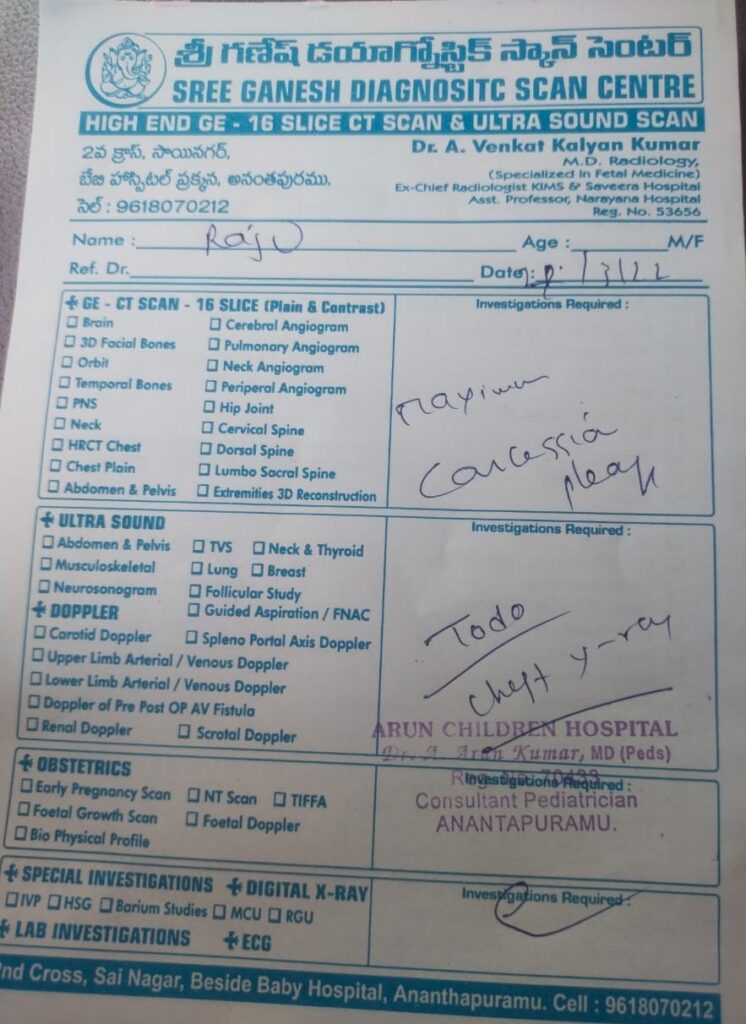 శ్రీ గణేష్ డయాగ్నోస్టిక్ స్కాన్ సెంటర్
SREE GANESH DIAGNOSITC SCAN CENTRE
HIGH END GE - 16 SLICE CT SCAN & ULTRA SOUND SCAN
2వ క్రాస్, సాయినగర్,
బేబి హాస్పిటల్ ప్రక్కన, అనంతపురము.
సెల్ : 9618070212
Dr. A. Venkat Kalyan Kumar
M.D. Radiology,
(Specialized in Fetal Medicine)
Ex-Chief Radiologist KIMS & Saveera Hospital
Asst. Professor, Narayana Hospital
Reg. No. 53656
Name : Raju Age : M/F
Ref. Dr. Date : /3/22
GE - CT SCAN - 16 SLICE (Plain & Contrast)
Brain Cerebral Angiogram
3D Facial Bones Pulmonary Angiogram
Orbit Neck Angiogram
Temporal Bones Periperal Angiogram
PNS Hip Joint
Neck Cervical Spine
HRCT Chest Dorsal Spine
Chest Plain Lumbo Sacral Spine
Abdomen & Pelvis Extremities 3D Reconstruction
Investigations Required :
Maximum
ULTRA SOUND
Abdomen & Pelvis TVS Neck & Thyroid
Musculoskeletal Lung Breast
Neurosonogram Follicular Study
Guided Aspiration / FNAC
DOPPLER
Carotid Doppler Spleno Portal Axis Doppler
Upper Limb Arterial / Venous Doppler
Lower Limb Arterial / Venous Doppler
Doppler of Pre Post OP AV Fistula
Renal Doppler Scrotal Doppler
Investigations Required :
Todo
Chest x-ray
ARUN CHILDREN HOSPITAL
Dr. A. Arun Kumar, MD (Peds)
Consultant Pediatrician
ANANTAPURAMU.
OBSTETRICS
Early Pregnancy Scan NT Scan TIFFA
Foetal Growth Scan Foetal Doppler
Bio Physical Profile
Investigations Required :
SPECIAL INVESTIGATIONS DIGITAL X-RAY
IVP HSG Barium Studies MCU RGU
LAB INVESTIGATIONS ECG
Investigations Required :
2nd Cross, Sai Nagar, Beside Baby Hospital, Ananthapuramu. Cell : 9618070212